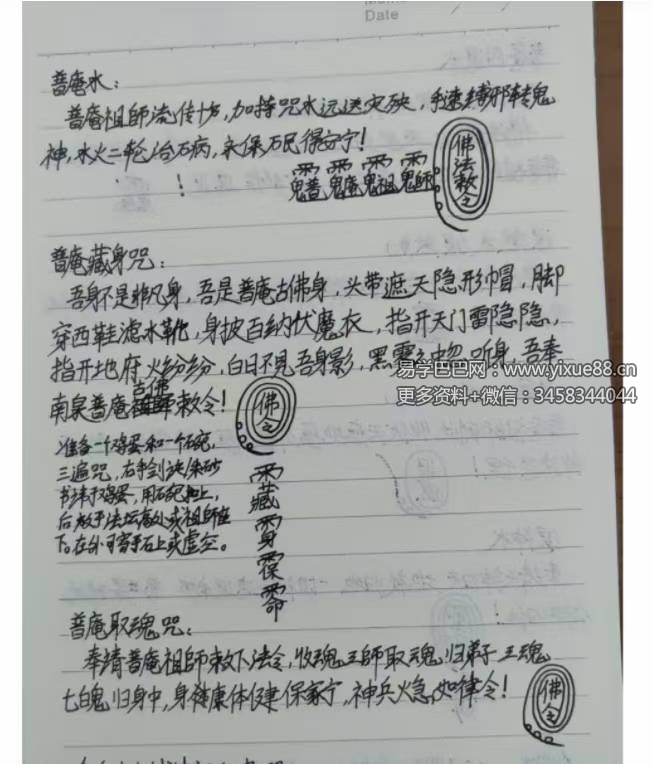 Date
普庵水：
普庵祖師流传妙，加持咒水远送灾殃，手速缚邪转鬼
神，水火二轮治石病，永保石民得安宁！
！
佛法敕令
普庵藏身咒：
吾身不是非凡身，吾是普庵古佛身，头带遮天隐形帽，脚
穿西鞋滤水靴，身披百纳伏魔衣，指开天门雷隐隐，
指开地府火纷纷，白日不见吾身影，黑雾 听身，吾奉
南泉普庵古佛祖師敕令！
佛令
准备一个鸡蛋和一个石碗，
三遍咒，右手剑诀朱砂
书讳于鸡蛋，用石碗 上，
后放于法坛高处或祖師座
下。在外可寄于石上或虚空。
普庵取魂咒：
奉請普庵祖師敕下法令，收魂王師取魂，归弟子三魂
七白鬼归身中，身健康体健保家宁，神兵火急如律令！
佛令
易学巴巴网：www.yixue88.cn
更多资料+微信：3458344044